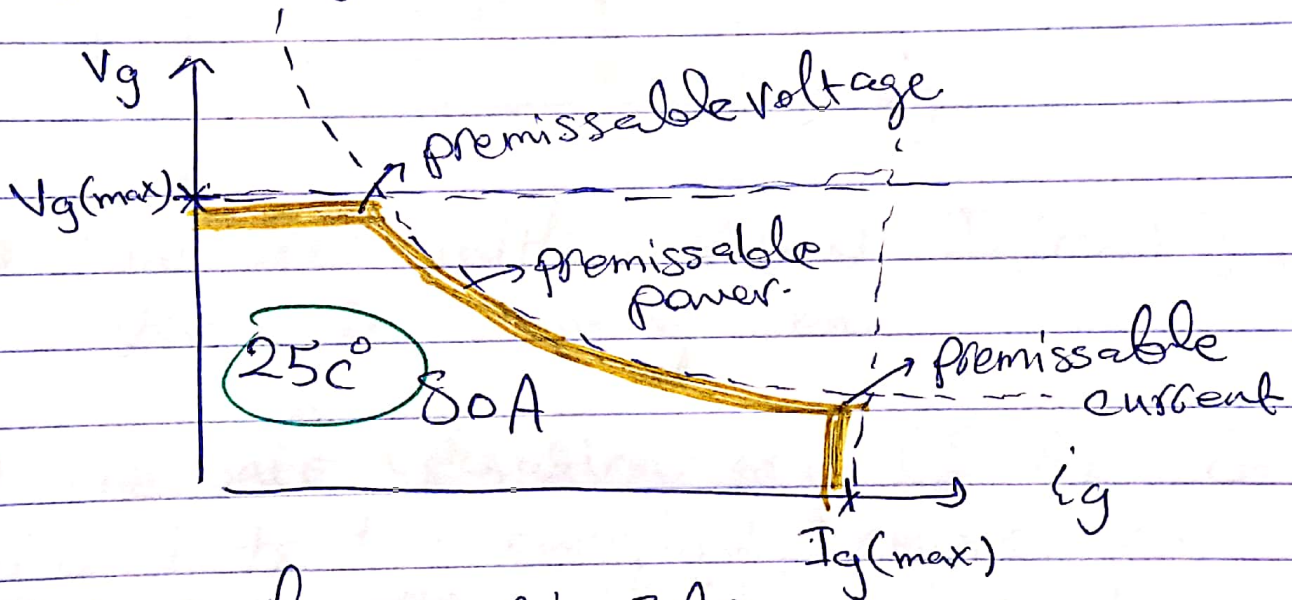 Vg
premissable voltage
Vg(max)
premissable
power.
25c°
80A
premissable
current
ig
Ig(max)